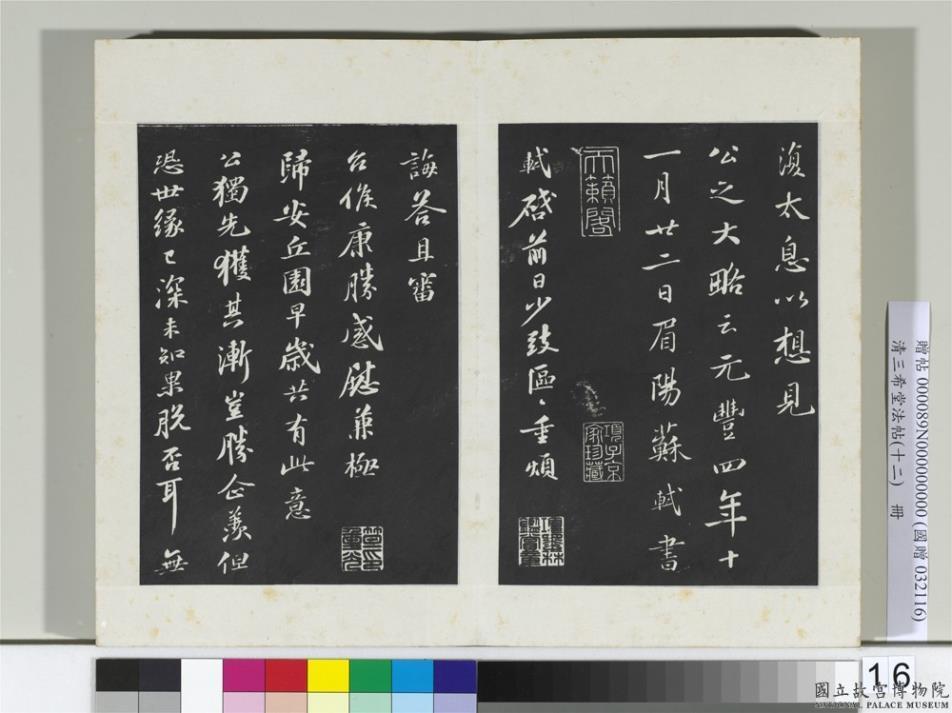 復太息以想見
公之大略云元豐四年十
一月廿二日眉陽蘇軾書
天籟閣
項子京家珍藏
軾啓前日少致區〻重煩
誨答且審
台候康勝感慰兼極
歸安丘園早歲共有此意
公獨先獲其漸豈勝企羨但
恐世緣已深未知果脫否耳無
贈帖 000089N000000000 (國贈 032116)
清三希堂法帖(十二) 冊
16
國立故宮博物院
NATIONAL PALACE MUSEUM